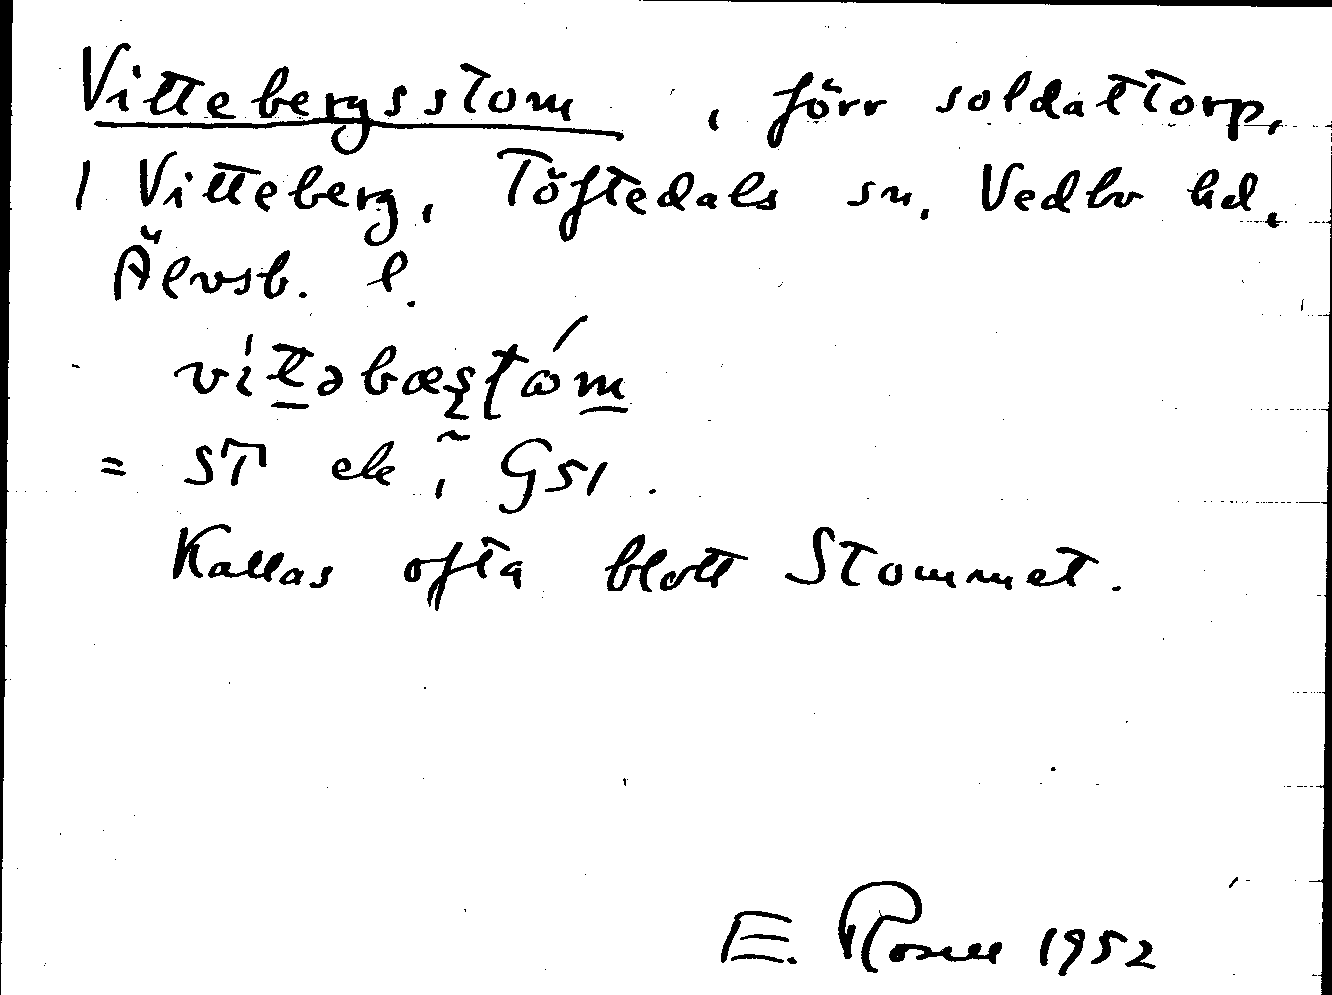 Vittebergsstom, förr soldattorp,
1 Vitteberg, Töftedals sn, Vedbo hd,
Älvsb. l.
vítəbæʂʈɷ́m
= ST ek i GS1.
Kallas ofta blott Stommet.
E. Rosell 1952